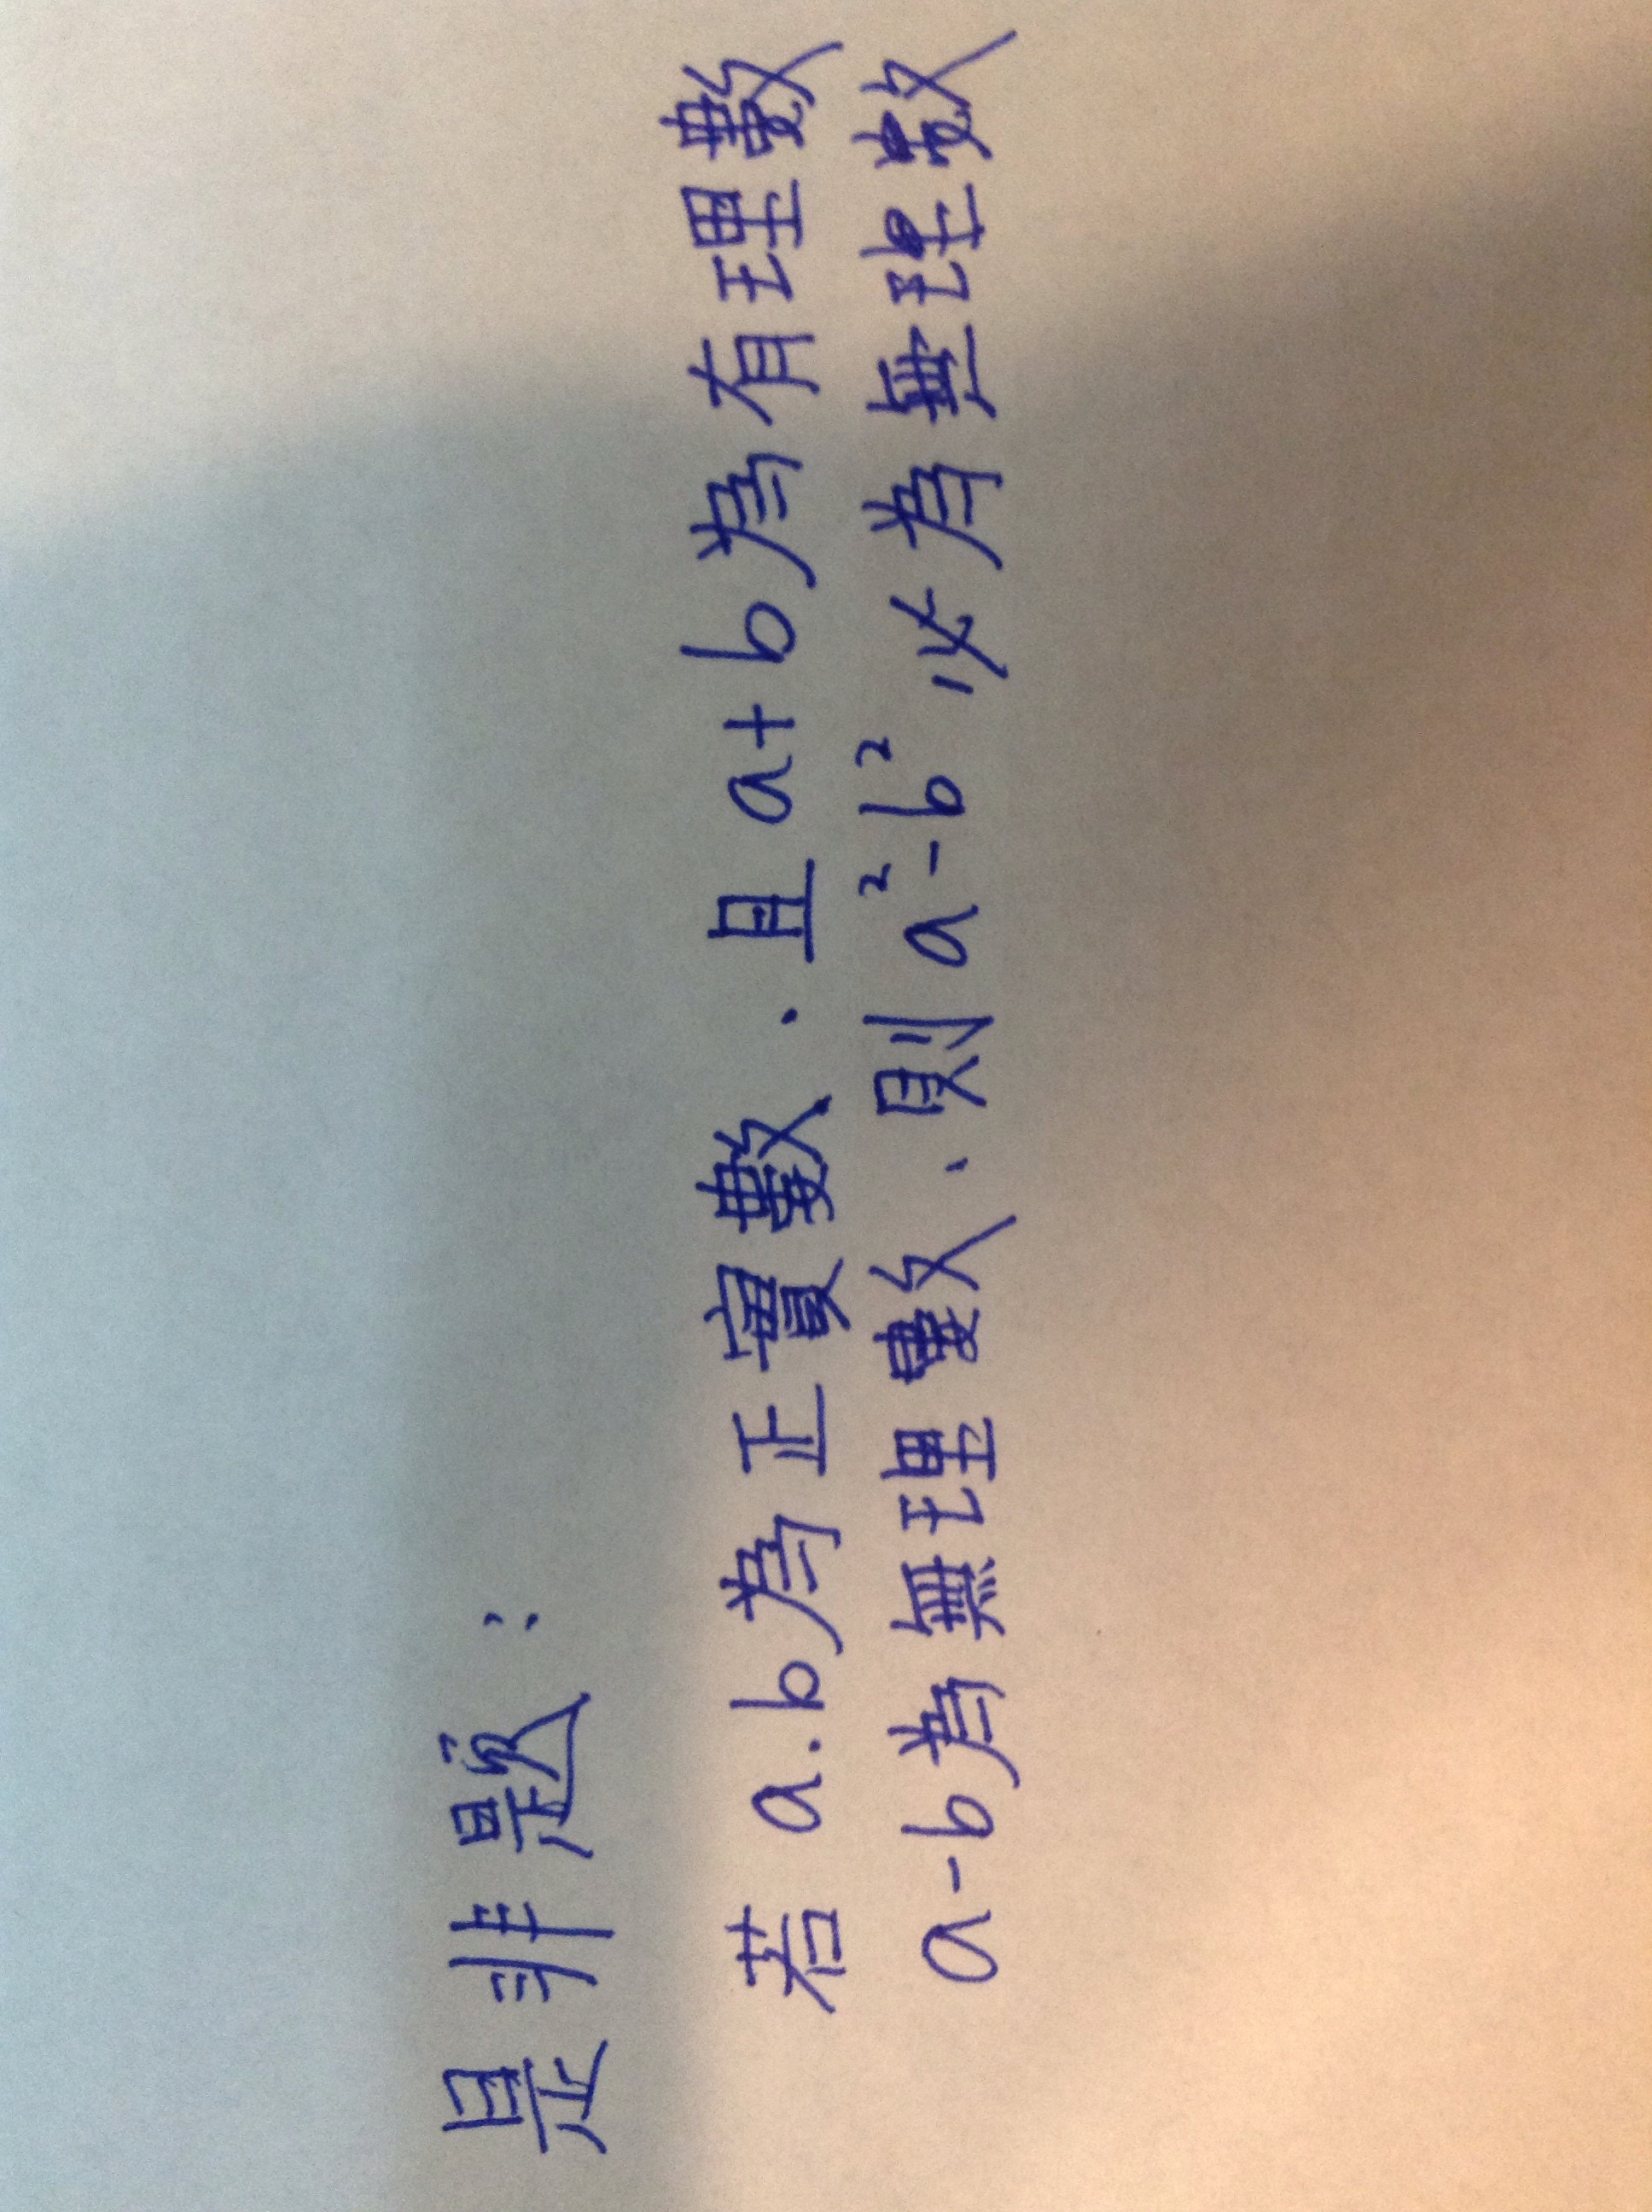 是非題：
若 a.b為正實數．且a+b為有理數
a-b為無理數．則a²-b²必為無理數